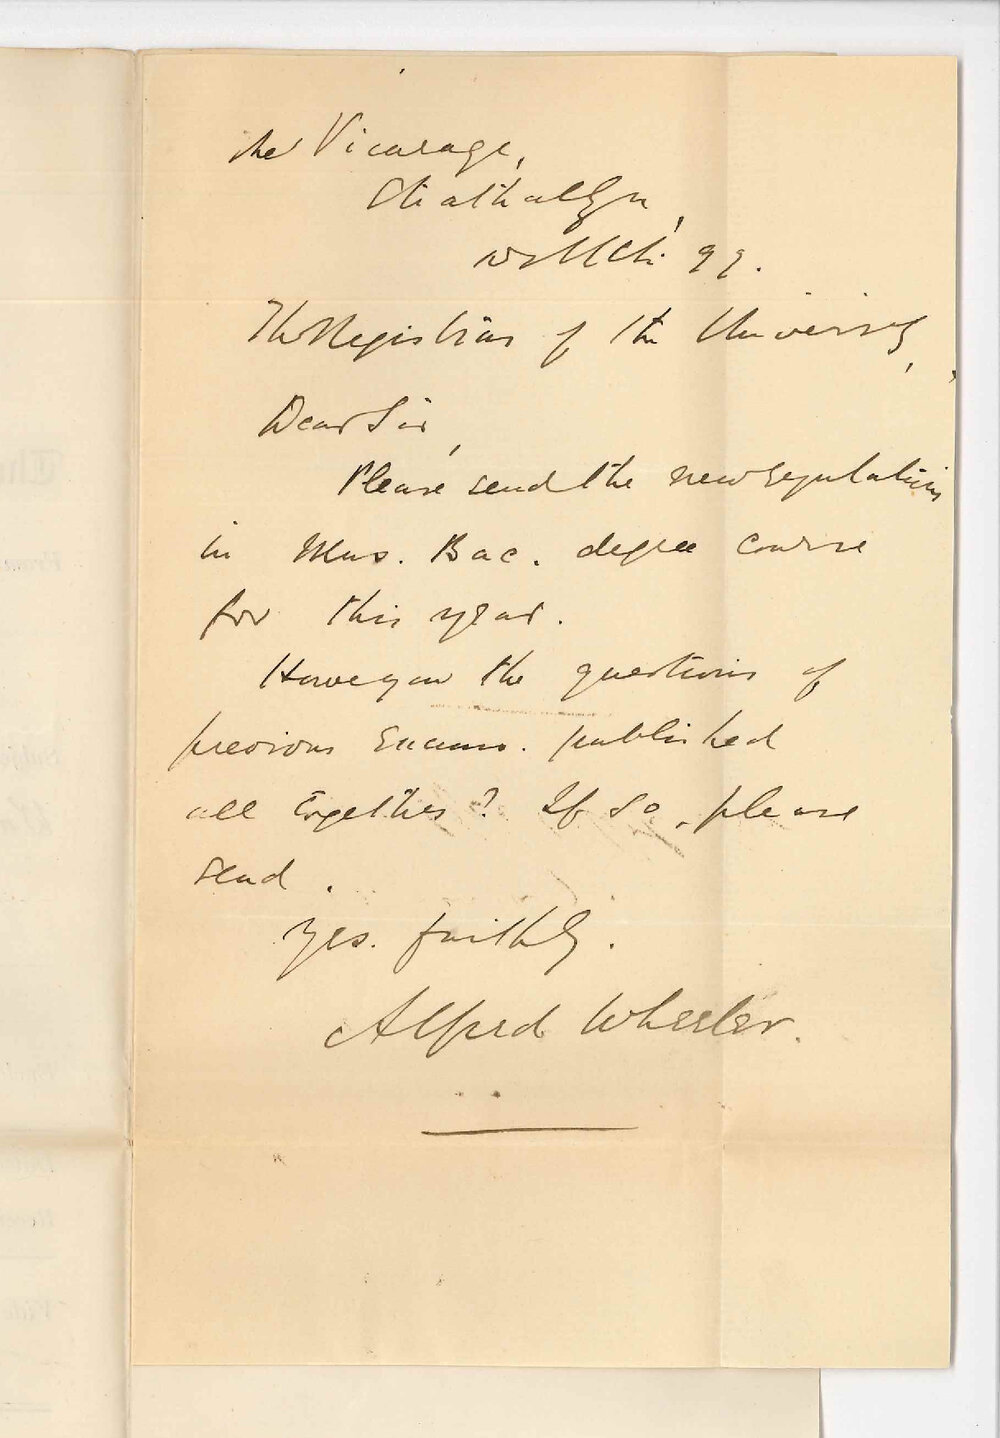 The Vicarage,
Strathalbyn,
Mch. 99.
The Registrar of the University,
Dear Sir,
Please send the new regulations
in Mus. Bac. degree course
for this year.
Have you the questions of
previous Exams. published
all together? If so, please
send.
Yrs. faithfly.
Alfred Wheeler.